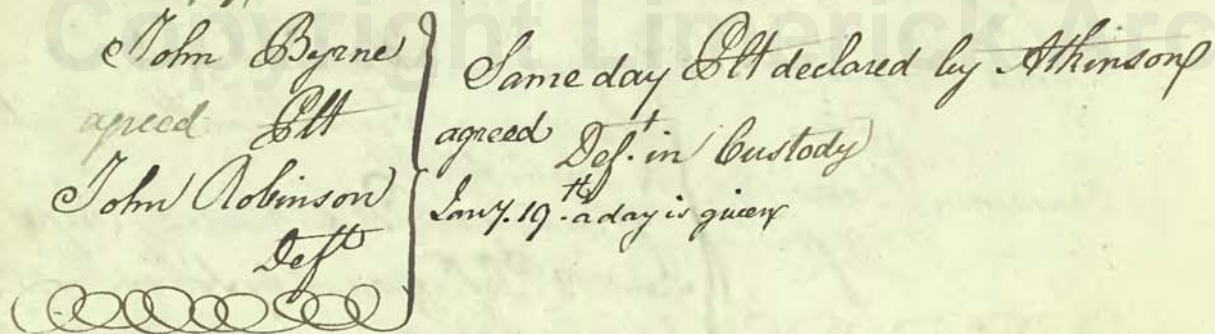 Copyright Limerick Arc
John Byrne
agreed Plt
John Robinson
Deft
Same day Plt declared by Atkinson
agreed Deft. in Custody
Jany. 19th. a day is given